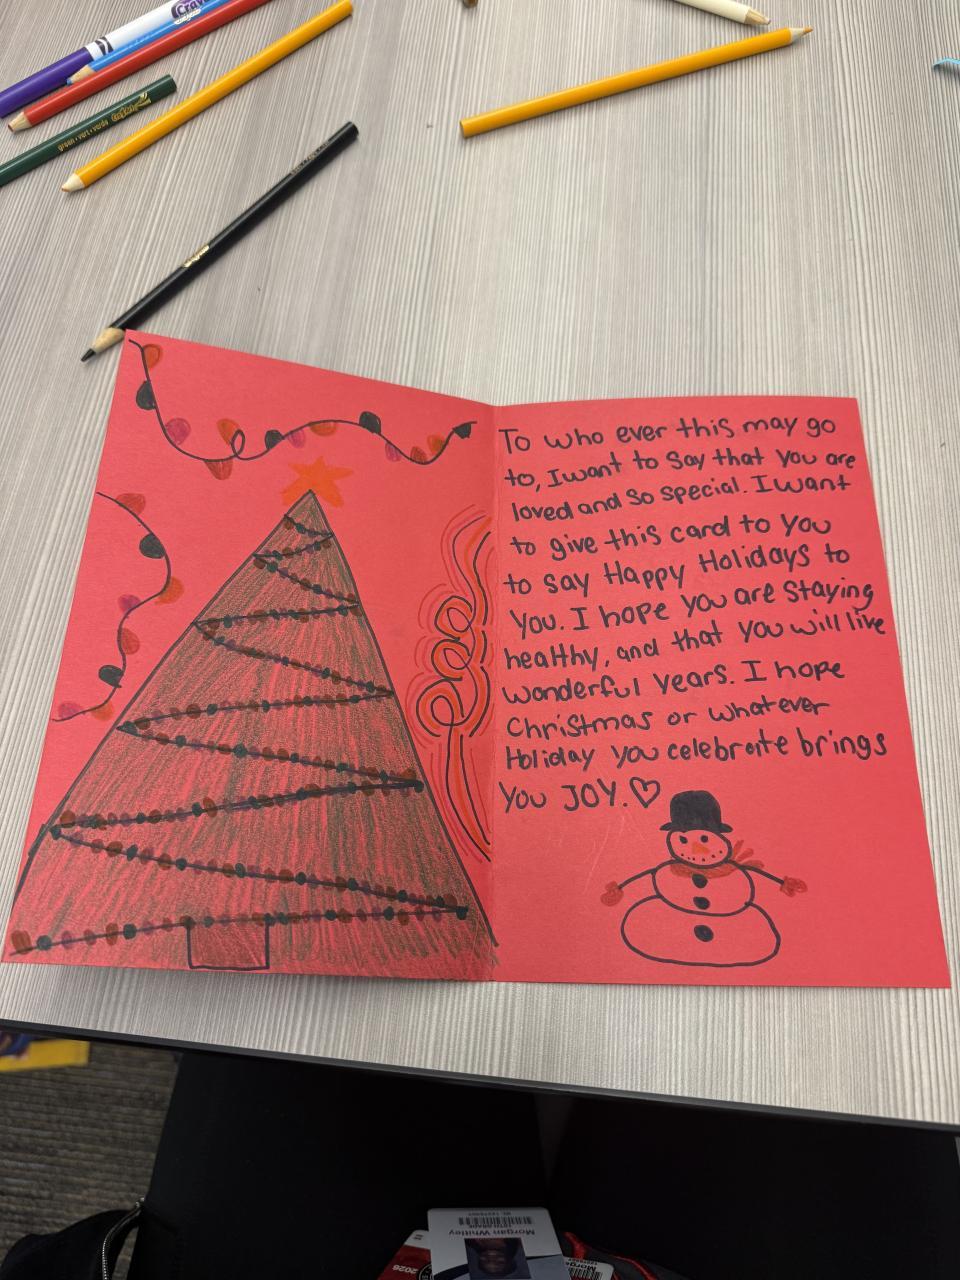 Cray
green•vert•verde Crayola
To who ever this may go
to, I want to say that you are
loved and so special. I want
to give this card to you
to say Happy Holidays to
you. I hope you are staying
healthy, and that you will live
wonderful years. I hope
Christmas or whatever
Holiday you celebrate brings
you JOY.♡
Morgan Whitley
10TH GRADE
2026
Morga